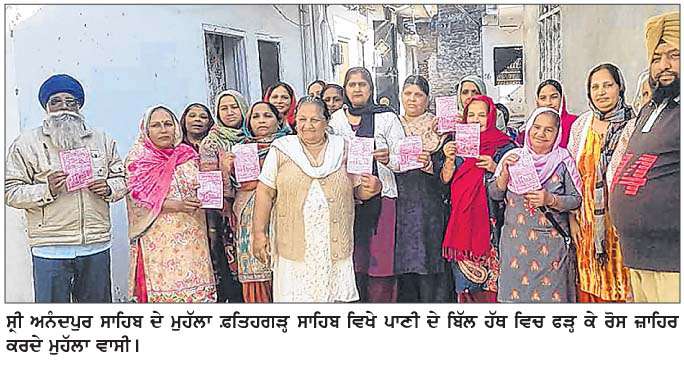 ਸ੍ਰੀ ਅਨੰਦਪੁਰ ਸਾਹਿਬ ਦੇ ਮੁਹੱਲਾ ਫ਼ਤਿਹਗੜ੍ਹ ਸਾਹਿਬ ਵਿਖੇ ਪਾਣੀ ਦੇ ਬਿੱਲ ਹੱਥ ਵਿਚ ਫੜ੍ਹ ਕੇ ਰੋਸ ਜ਼ਾਹਿਰ
ਕਰਦੇ ਮੁਹੱਲਾ ਵਾਸੀ।